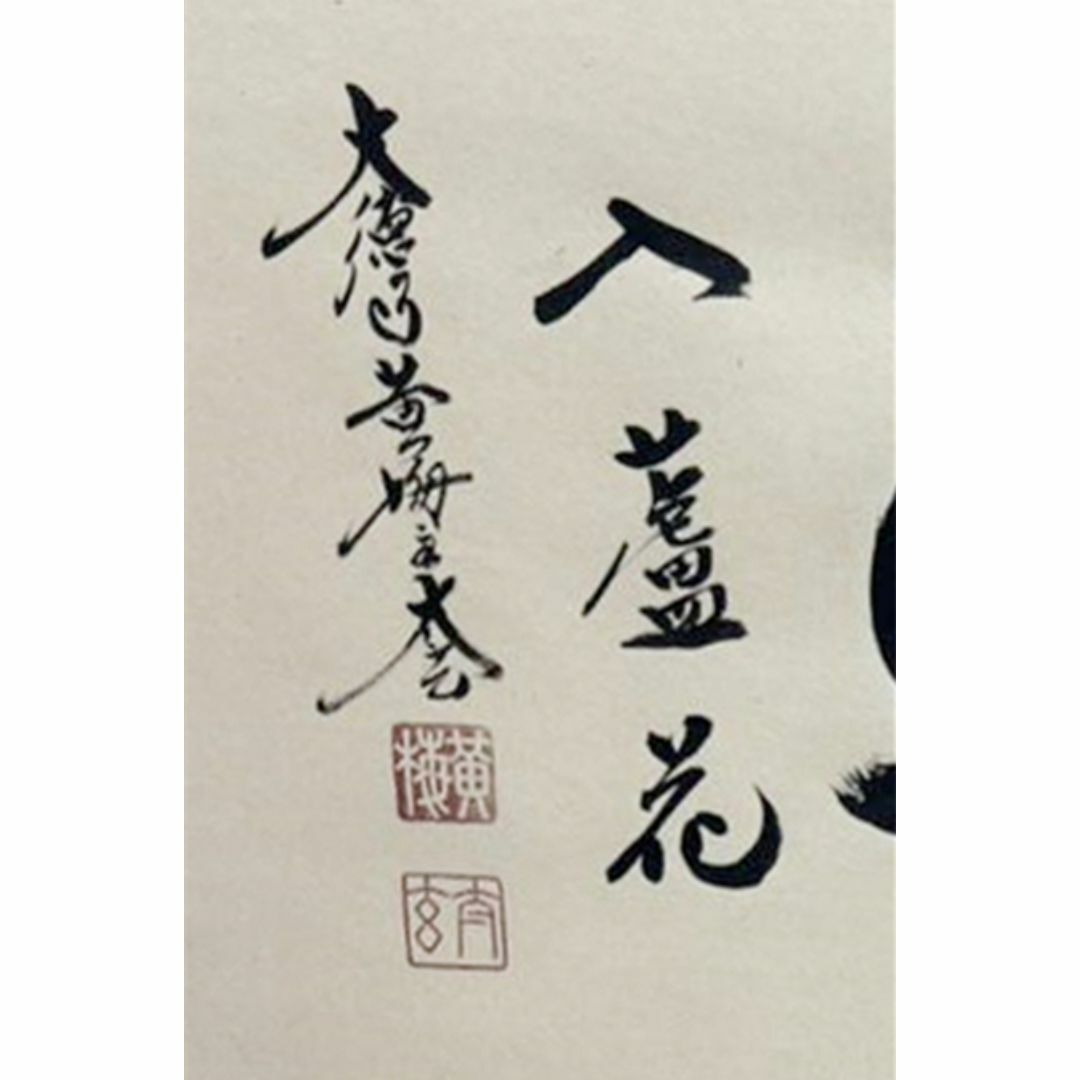 入蘆花
大徳黄梅主太玄
黄梅
太玄